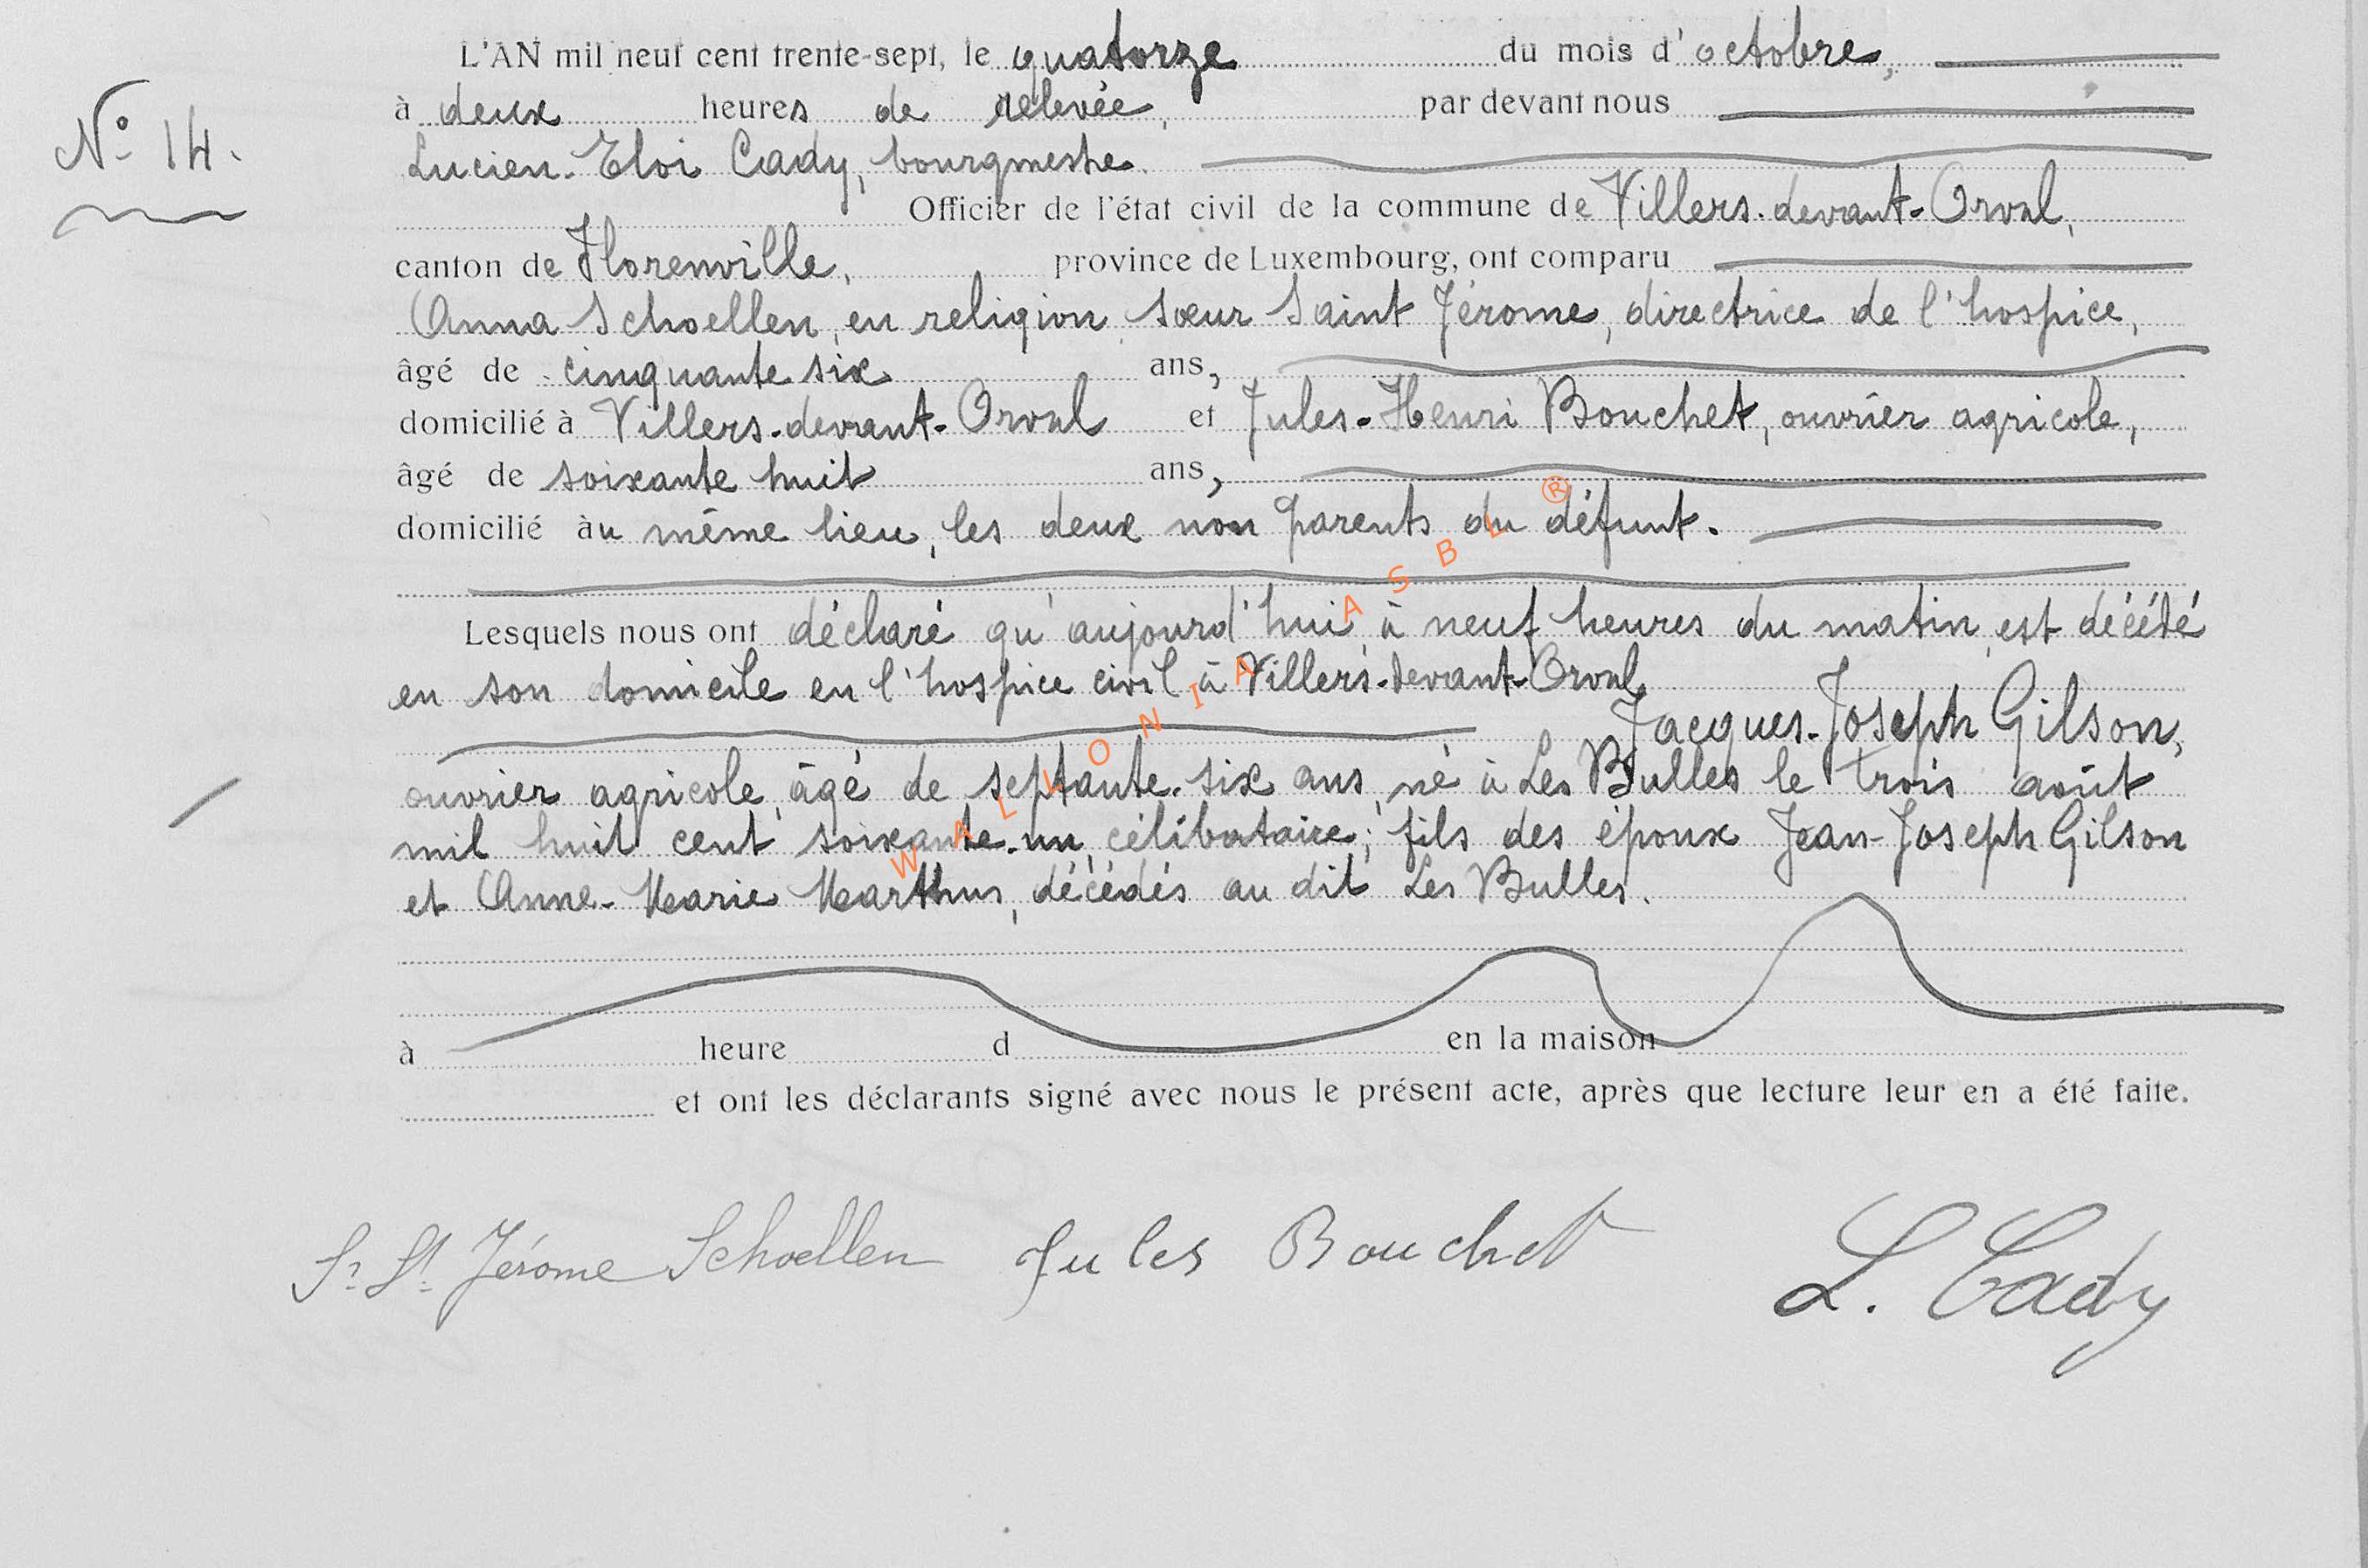 L'AN mil neuf cent trente-sept, le quatorze du mois d'octobre,
à deux heures de relevée, par devant nous
N° 14.
Lucien-Eloi Cady, bourgmestre.
Officier de l'état civil de la commune de Villers-devant-Orval,
canton de Florenville, province de Luxembourg, ont comparu
Anna Schoellen, en religion sœur Saint Jérome, directrice de l'hospice,
âgé de cinquante six ans,
domicilié à Villers-devant-Orval et Jules-Henri Bouchet, ouvrier agricole,
âgé de soixante huit ans,
domicilié àu même lieu, les deux non parents du défunt.
Lesquels nous ont déclaré qu'aujourd'hui à neuf heures du matin, est décédé
en son domicile en l'hospice civil à Villers-devant-Orval,
Jacques-Joseph Gilson,
ouvrier agricole, âgé de septante-six ans, né à Les Bulles le trois août
mil huit cent soixante-un, célibataire; fils des époux Jean-Joseph Gilson
et Anne-Marie Marthus, décédés au dit Les Bulles.
à heure d en la maison
et ont les déclarants signé avec nous le présent acte, après que lecture leur en a été faite.
Sr St Jérome Schoellen Jules Bouchet L. Cady
WALLONIA ASBL ®